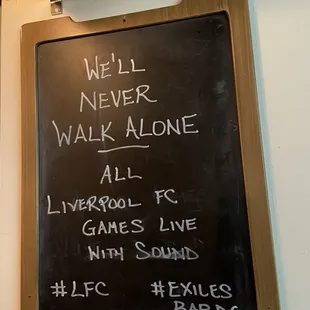 WE'LL
NEVER
WALK ALONE
ALL
LIVERPOOL FC
GAMES LIVE
WITH SOUND
#LFC #EXILES
BARDC